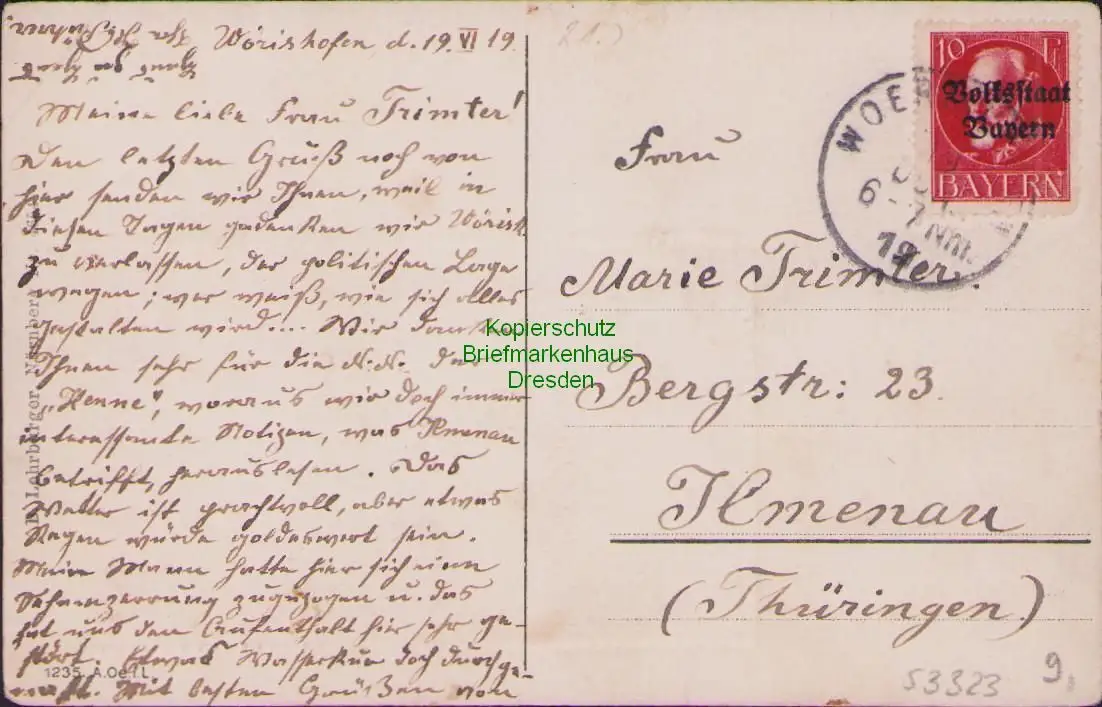 Wörishofen d. 19. VI 19.
Meine liebe Frau Trimter!
Den letzten Gruß noch von
hier senden wir Ihnen, weil in
diesen Tagen gedenken wir Wörish.
zu verlassen, der politischen Lage
wegen; wer weiß, wie sich alles
gestalten wird.... Wir danken
Ihnen sehr für die N.N. der
„Henne“, woraus wir doch immer
interessante Notizen, was Ilmenau
betrifft, herauslesen. Das
Wetter ist prachtvoll, aber etwas
Regen würde goldeswert sein.
Mein Mann hatte hier sich eine
Sehnenzerrung zugezogen u. das
hat uns den Aufenthalt hier sehr ge-
stört. Etwas Wasserkur doch durchge-
macht. Mit besten Grüßen von
1235. A.Oe.i.L.
Lehrburger, Nürnberg
10 Pf
Volksstaat
Bayern
BAYERN
WOE
6-7 Nm.
19
Frau
Marie Trimter.
Bergstr: 23.
Ilmenau
(Thüringen)
Kopierschutz
Briefmarkenhaus
Dresden
53323
9,